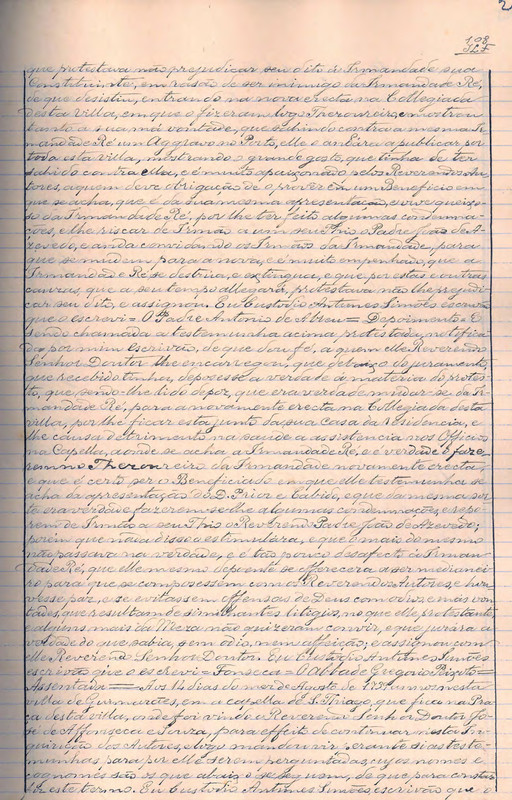 2
108
que protestava não prejudicar seu dito á Irmandade sua
Constituinte, em rasão de ser inimigo da Irmandade Ré,
de que desistiu, entrando na nova erecta na Collegiada
desta Villa, em que o fizeram logo Thezoureiro, e mostran
tanto a sua má vontade, que sahindo contra a mesma Ir
mandade Ré um Aggravo no Porto, elle o andára a publicar por
toda esta villa, mostrando o grande gosto, que tinha de ter
sahido contra ella, e é muito apaixonado pelos Reverendos Au
tores, a quem deve obrigação de o proverem em um Beneficio em
que se acha, que é da sua mesma apresentação, e vive queixo
so da Irmandade Ré, por lhe ter feito algumas condemna
ções, e lhe riscar de Irmão a um seu Thio o Padre João de A
zevedo, e anda convidando os Irmãos da Irmandade, para
que se mudem para a nova, e é muit empenhado, que a
Irmandade Ré se destrua, e extingua, e que por estas e outras
causas, que a seu tempo allegará, protestava não lhe prejudi
car seu dito, e assignou. Eu Custodio Antunes Simões escrivão
que o escrevi = O Padre Antonio de Abreu = Depoimento = E
sendo chamada a testemunha acima protestada, notifica
da por mim escrivão, de que dou fé, a quem elle Reverendo
Senhor Doutor lhe encarregou, que debaixo do juramento,
que recebido tinha, depozesse a verdade á materia do protes
to, que sendo-lhe lido depoz, que era verdade mudar-se da Ir
mandade Ré, para a novamente erecta na Collegiada desta
villa, por lhe ficar esta junto da sua casa da residencia, e
lhe causa detrimento na saude a assistencia nos Officios
na Capella, aonde se acha, a Irmandade Ré, e é verdade o faze
rem no Thezoureiro da Irmandade novamente erecta,
e que é certo ser o Beneficiado em que elle testemunha se
acha da apresentação do D. Prior e Cabido, e que da mesma sor
te era verdade fazerem-se-lhe algumas condemnações, e
rem de Irmão a seu Thio o Reverendo Padre João de Azevedo;
porém que nada disso o estimulára, e que do mais do mesmo
não passava na verdade, e é tão pouco desafecto á Irman
dade Ré, que elle mesmo depoente se offerecera a ser medianei
ro para que se composessem com os Reverendos Autores e hou
vesse paz, e se evitassem offensas de Deus com odios e más von
tades, que resultam de similhantes litigios, no que elle protestante,
e alguns mais da Meza não quizeram convir, e que jurára a
verdade do que sabia, sem odio, nem affeição, e assignou com
elle Reverendo Senhor Doutor. Eu Custodio Antunes Simões
escrivão que o escrevi = Fonseca = O Abbade Gregorio Peixoto =
Assentada = Aos 14 dias do mez de Agosto de annos nesta
villa de Guimarães, em a capella de S. Thiago, que fica na Pra
ça desta villa, onde foi vindo o Reverendo Senhor Doutor Jo
sé de Affonseca e Souza, para effeito de continuar nesta In
quirição dos Autores, logo mandou vir perante si as teste
munhas para por elle serem perguntadas, cujos nomes e
cognomes são os que abaixo se seguem, de que para constar
fiz este termo. Eu Custodio Antunes Simões escrivão que o